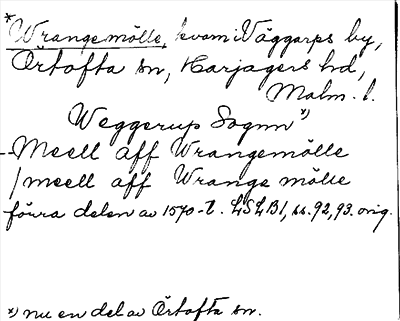 *Wrangemölle, kvarn i Väggarps by,
Örtofta sn, Harjagers hd,
Malm. l.
Weggerup Sognn x)
-- Meell aff Wrangemölle
/ meell aff Wrange mölle
förra delen av 1570-t. LSLB1, ss. 92, 93. orig.
x) nu en del av Örtofta sn.